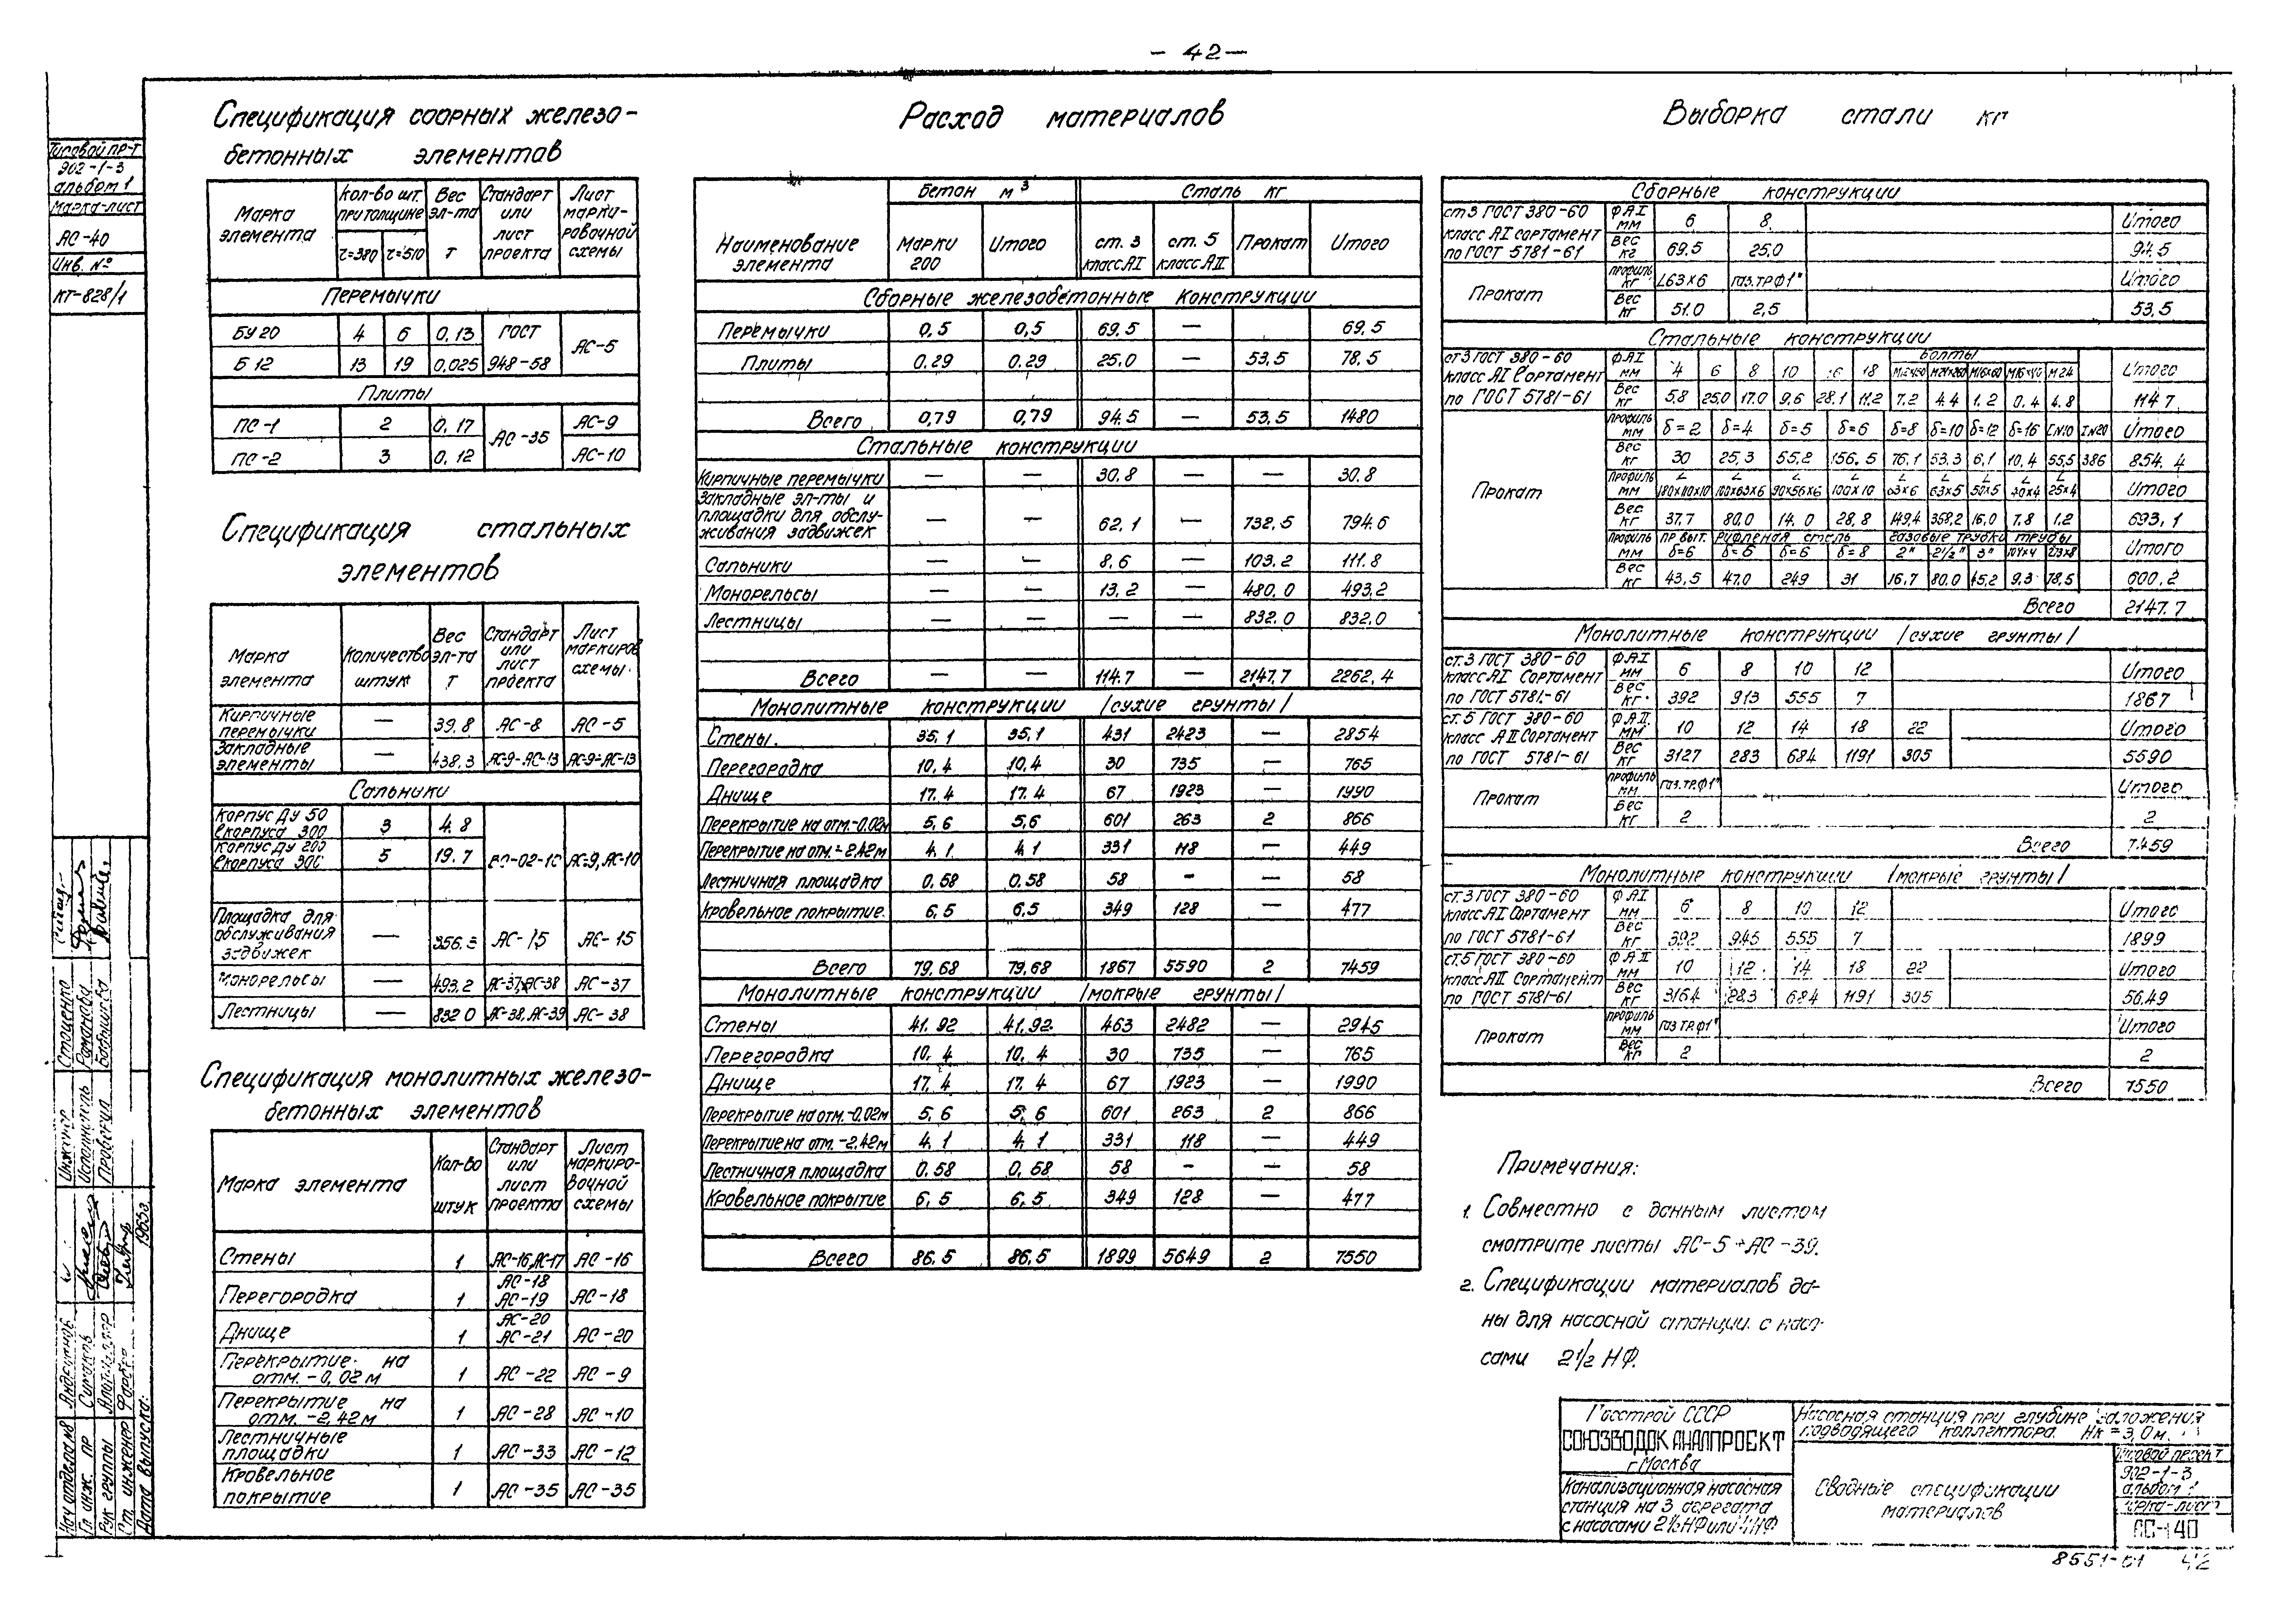 - 42 -
Типовой пр-т
902-1-3
альбом 1
Марка-лист
АС-40
Инв. №
КТ-828/1
Спецификация сборных железо-
бетонных элементов
Марка элемента | Кол-во шт. при толщине | Вес эл-та т | Стандарт или лист проекта | Лист маркировочной схемы
τ=380 τ=510
Перемычки
БУ 20 4 6 0,13 ГОСТ
Б 12 13 19 0,025 948-58 АС-5
Плиты
ПС-1 2 0,17 АС-35 АС-9
ПС-2 3 0,12 АС-10
Спецификация стальных
элементов
Марка элемента | Количество штук | Вес эл-та т | Стандарт или лист проекта | Лист маркиров схемы.
Кирпичные перемычки — 39.8 АС-8 АС-5
Закладные элементы — 438,3 АС-9-АС-13 АС-9-АС-13
Сальники
Корпус Ду 50 ℓкорпуса 300 3 4.8
Корпус Ду 200 ℓкорпуса 300 5 19.7 ВО-02-10 АС-9, АС-10
Площадка для обслуживания задвижек — 356.3 АС-15 АС-15
Монорельсы — 493.2 АС-37,АС-38 АС-37
Лестницы — 832.0 АС-38,АС-39 АС-38
Спецификация монолитных железо-
бетонных элементов
Марка элемента | Кол-во штук | Стандарт или лист проекта | Лист маркировочной схемы
Стены 1 АС-16,АС-17 АС-16
Перегородка 1 АС-18 АС-19 АС-18
Днище 1 АС-20 АС-21 АС-20
Перекрытие на отм. -0,02м 1 АС-22 АС-9
Перекрытие на отм. -2,42м 1 АС-28 АС-10
Лестничные площадки 1 АС-33 АС-12
Кровельное покрытие 1 АС-35 АС-35
Расход материалов
Наименование элемента | Бетон м³ | Сталь кг
Марки 200 | Итого | ст. 3 класс АI | ст. 5 класс АII | Прокат | Итого
Сборные железобетонные конструкции
Перемычки 0,5 0,5 69.5 — 69.5
Плиты 0.29 0.29 25.0 — 53.5 78.5
Всего 0,79 0,79 94.5 — 53,5 1480
Стальные конструкции
Кирпичные перемычки — — 30.8 — — 30.8
Закладные эл-ты и площадки для обслуживания задвижек — — 62.1 — 732.5 794.6
Сальники — — 8,6 — 103.2 111.8
Монорельсы — — 13,2 — 480.0 493.2
Лестницы — — — — 832.0 832.0
Всего — — 114.7 — 2147.7 2262,4
Монолитные конструкции /сухие грунты/
Стены. 35,1 35,1 431 2423 — 2854
Перегородка 10,4 10,4 30 735 — 765
Днище 17.4 17.4 67 1923 — 1990
Перекрытие на отм.-0.02м 5,6 5,6 601 263 2 866
Перекрытие на отм.-2,42м 4.1 4.1 331 118 — 449
Лестничная площадка 0.58 0.58 58 - — 58
Кровельное покрытие. 6,5 6,5 349 128 — 477
Всего 79.68 79,68 1867 5590 2 7459
Монолитные конструкции /мокрые грунты/
Стены 41.92 41,92. 463 2482 — 2945
Перегородка 10.4 10.4 30 735 — 765
Днище 17.4 17.4 67 1923 — 1990
Перекрытие на отм.-0.02м 5,6 5,6 601 263 2 866
Перекрытие на отм.-2,42м 4.1 4.1 331 118 — 449
Лестничная площадка 0.58 0,58 58 - - 58
Кровельное покрытие 6,5 6,5 349 128 — 477
Всего 86.5 86,5 1899 5649 2 7550
Выборка стали кг
Сборные конструкции
ст 3 ГОСТ 380-60 класс АI сортамент по ГОСТ 5781-61
ФАI мм 6 8 Итого
Вес кг 69.5 25.0 94.5
Прокат
Профиль кг L63х6 газ.тр.ф1" Итого
Вес кг 51.0 2,5 53,5
Стальные конструкции
ст 3 ГОСТ 380-60 класс АI Сортамент по ГОСТ 5781-61
Болты
ФАI мм 4 6 8 10 16 18 М16х60 М24 Итого
Вес кг 5,8 25,0 17.0 9,6 28,1 11.2 7.2 4.4 1.2 0.4 4.8 114.7
Прокат
Профиль мм δ=2 δ=4 δ=5 δ=6 δ=8 δ=10 δ=12 δ=16 [N10 I N20 Итого
Вес кг 30 25,3 55,2 156,5 76,1 53,3 6,1 10,4 55,5 386 854.4
Профиль мм L180х110х10 L100х63х6 L90х56х6 L100х10 L63х6 L63х5 L50х5 L40х4 L25х4 Итого
Вес кг 37.7 80.0 14.0 28,8 149,4 358,2 16,0 7.8 1.2 693,1
Профиль мм пр выт. рифленая сталь газовые трубки трубы
δ=6 δ=5 δ=6 δ=8 2" 2½" 3" Итого
Вес кг 43,5 47.0 249 31 16,7 80,0 45,2 9,3 78,5 600,2
Всего 2147.7
Монолитные конструкции /сухие грунты/
ст. 3 ГОСТ 380-60 класс АI Сортамент по ГОСТ 5781-61
ФАI мм 6 8 10 12 Итого
Вес кг. 392 913 555 7 1867
ст. 5 ГОСТ 380-60 класс АII Сортамент по ГОСТ 5781-61
ФАII мм 10 12 14 18 22 Итого
Вес кг 3127 283 684 1191 305 5590
Прокат
Профиль мм газ.тр.ф1" Итого
Вес кг 2 2
Всего 7459
Монолитные конструкции /мокрые грунты/
ст. 3 ГОСТ 380-60 класс АI Сортамент по ГОСТ 5781-61
ФАI мм 6 8 10 12 Итого
Вес кг 392 945 555 7 1899
ст. 5 ГОСТ 380-60 класс АII Сортамент по ГОСТ 5781-61
ФАII мм 10 12 14 18 22 Итого
Вес кг 3164 283 684 1191 305 5649
Прокат
Профиль мм газ тр.ф1" Итого
Вес кг 2 2
Всего 7550
Примечания:
1. Совместно с данным листом
смотрите листы АС-5÷АС-39.
2. Спецификации материалов да-
ны для насосной станции с насо-
сами 2½ НФ.
Госстрой СССР
СОЮЗВОДОКАНАЛПРОЕКТ
г. Москва
Канализационная насосная
станция на 3 агрегата
с насосами 2½НФ или 4НФ
Насосная станция при глубине заложения
подводящего коллектора Нк = 3,0 м.
Сводные спецификации
материалов
Типовой проект
902-1-3
альбом 1
Марка-лист
АС-40
8551-01 42
Нач отдела №8
Гл инж. пр Симаков
Рук группы
Ст. инженер
Дата выпуска: 1963г
Инженер Стаценко
Исполнитель
Проверил